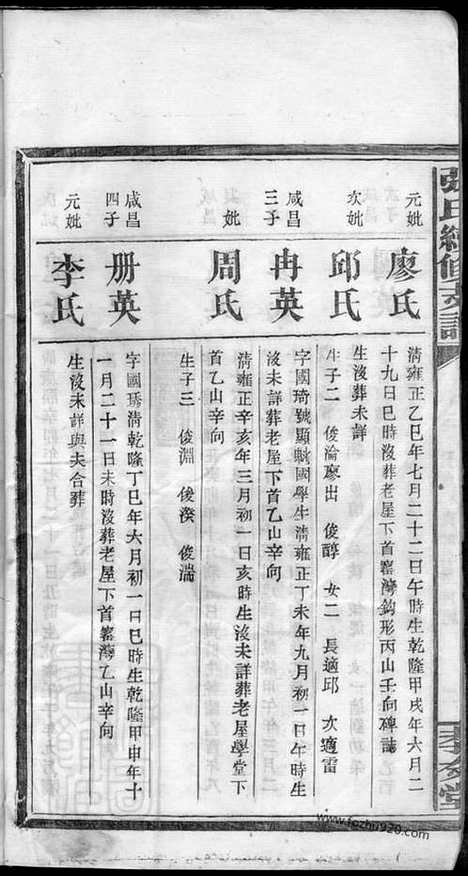 張氏續修支譜
孝友堂
元妣
廖氏
清雍正乙巳年七月二十二日午時生乾隆甲戌年六月二
十九日巳時沒葬老屋下首窰灣鈎形丙山壬向碑誌
次妣
邱氏
生沒葬未詳
生子二 俊淪廖出 俊醇 女二 長適邱 次適雷
咸昌
三子
冉英
字國琦號顯 國學生清雍正丁未年九月初一日午時生
沒未詳葬老屋下首乙山辛向
妣
周氏
清雍正辛亥年三月初一日亥時生沒未詳葬老屋學堂下
首乙山辛向
生子三 俊淵 俊湀 俊湍
咸昌
四子
册英
字國琇清乾隆丁巳年六月初一日巳時生乾隆甲申年十
一月二十一日未時沒葬老屋下首窰灣乙山辛向
元妣
李氏
生沒未詳與夫合葬
www.fozhu920.com